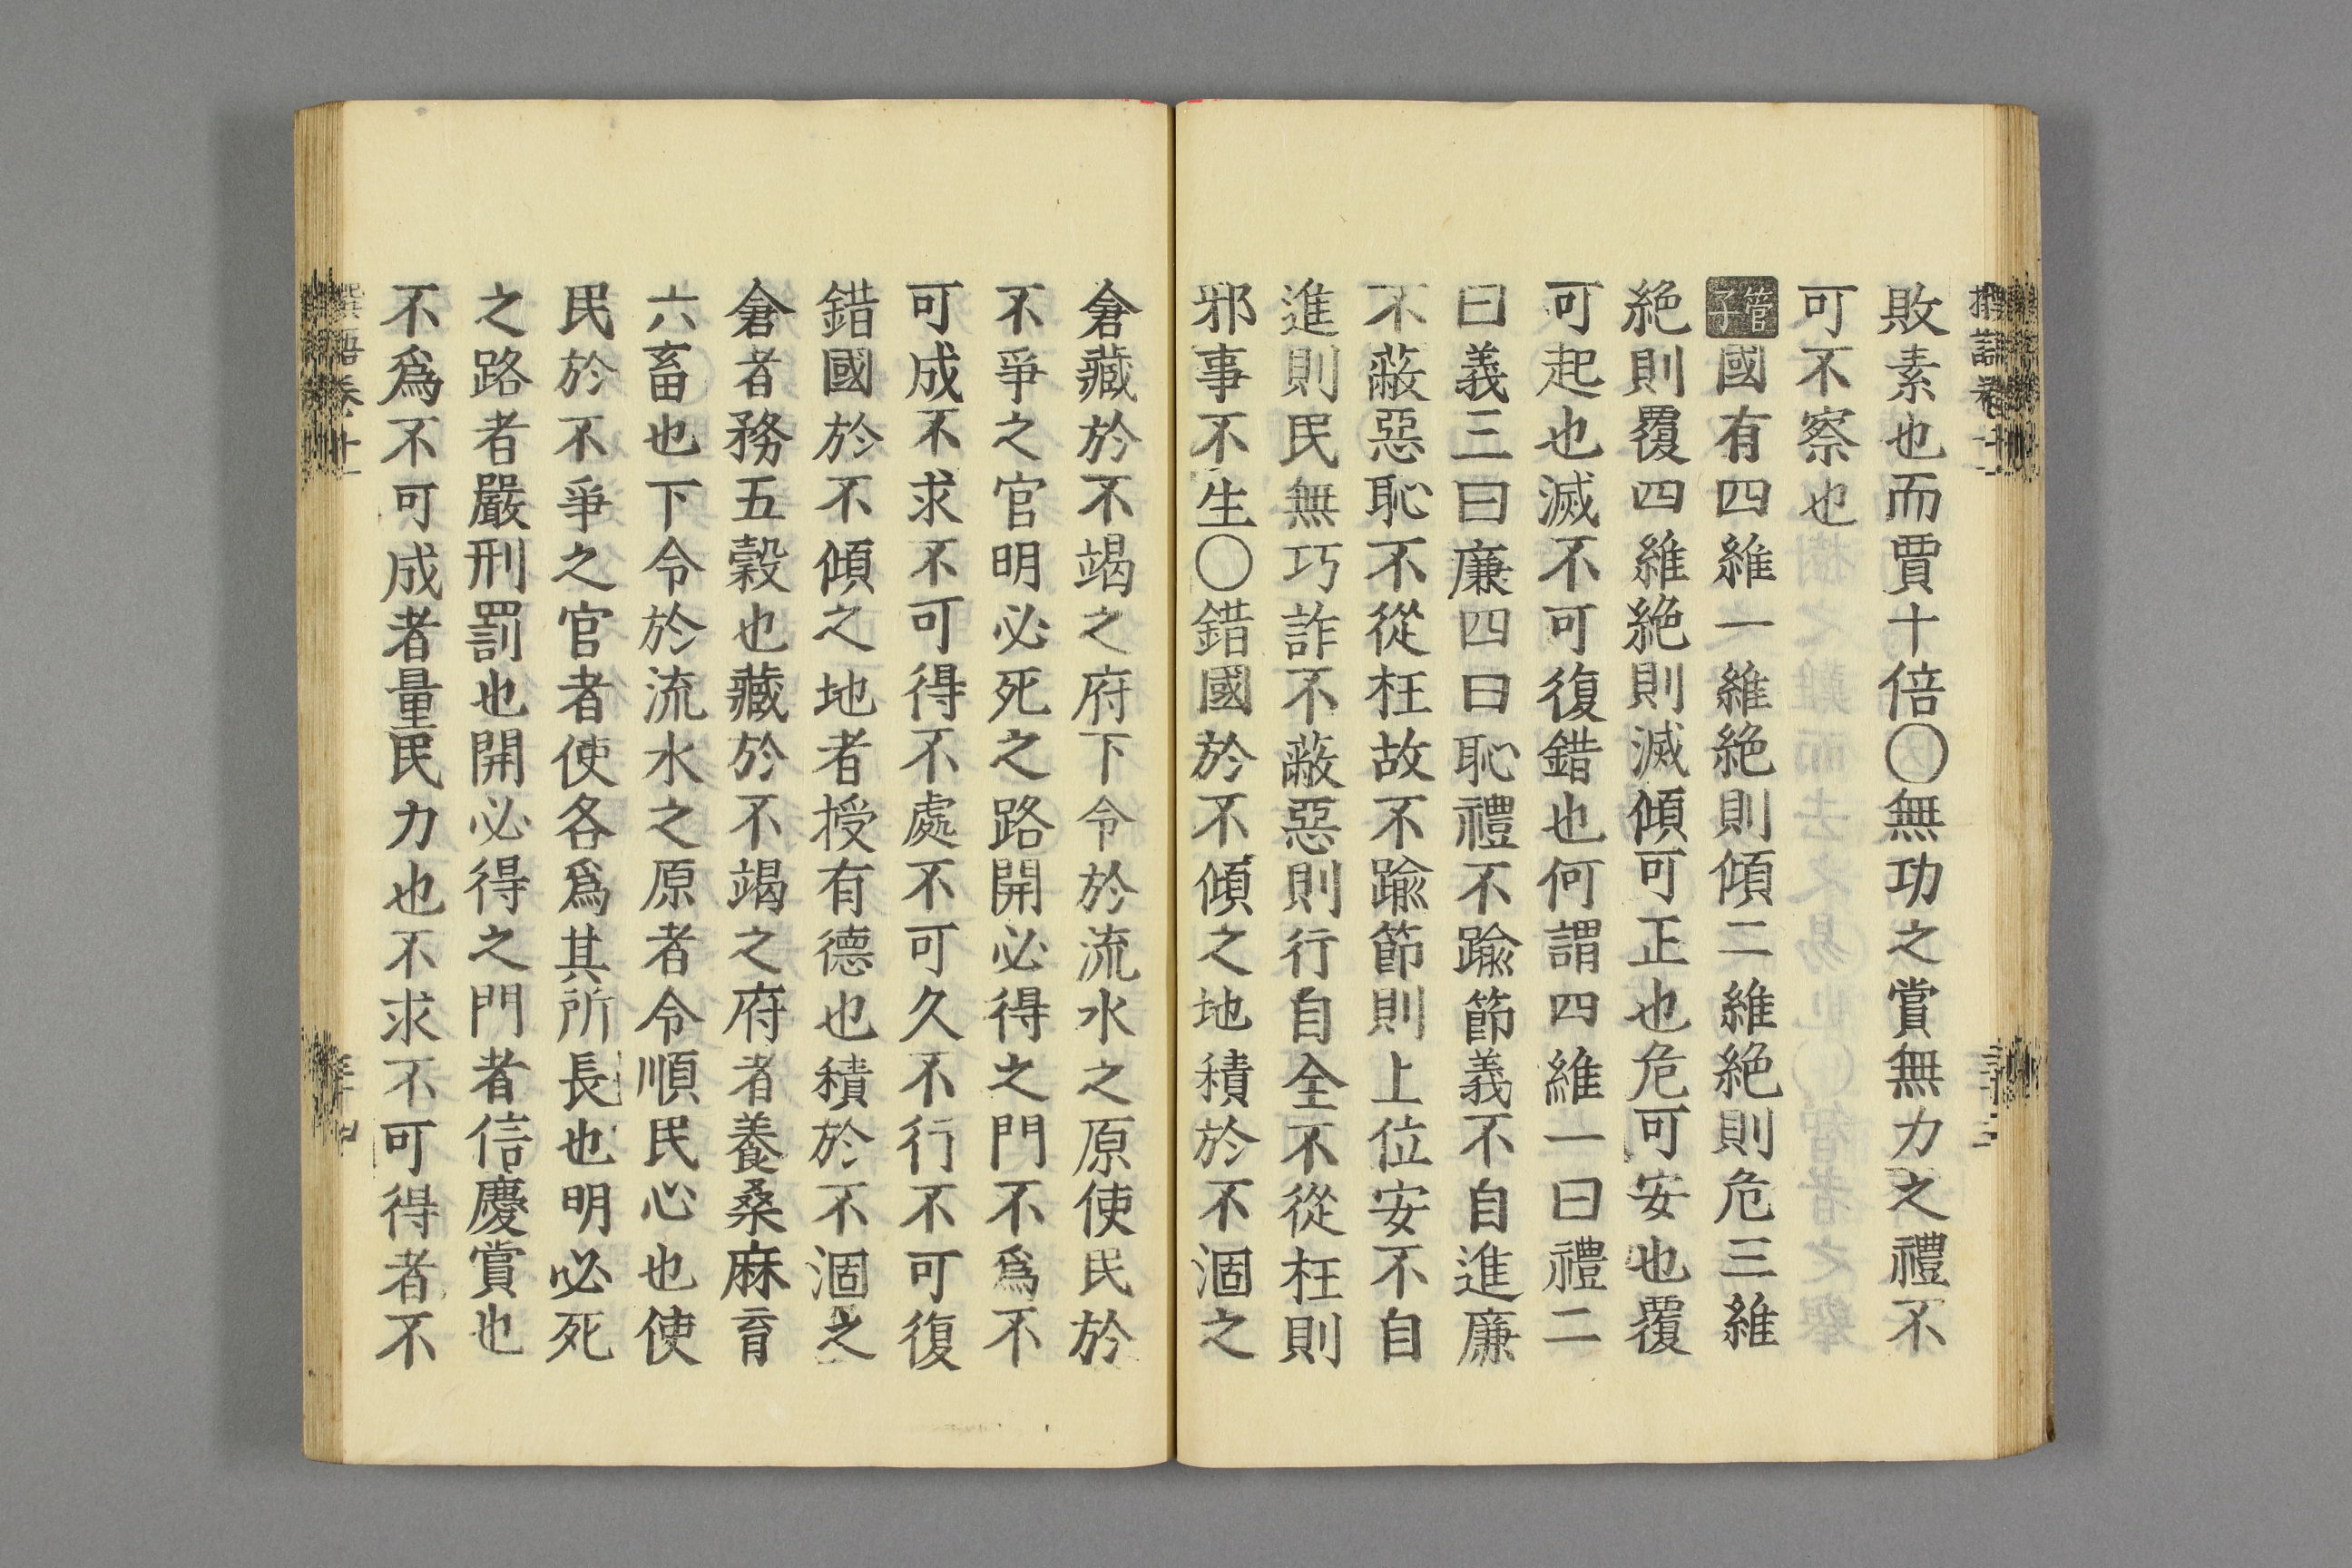 敗素也而賈十倍〇無功之賞無力之禮不
可不察也
管子國有四維一維絶則傾二維絶則危三維
絶則覆四維絶則滅傾可正也危可安也覆
可起也滅不可復錯也何謂四維一曰禮二
曰義三曰廉四曰恥禮不踰節義不自進廉
不蔽惡恥不從枉故不踰節則上位安不自
進則民無巧詐不蔽惡則行自全不從枉則
邪事不生〇錯國於不傾之地積於不涸之
倉藏於不竭之府下令於流水之原使民於
不爭之官明必死之路開必得之門不爲不
可成不求不可得不處不可久不行不可復
錯國於不傾之地者授有德也積於不涸之
倉者務五穀也藏於不竭之府者養桑麻育
六畜也下令於流水之原者令順民心也使
民於不爭之官者使各爲其所長也明必死
之路者嚴刑罰也開必得之門者信慶賞也
不爲不可成者量民力也不求不可得者不